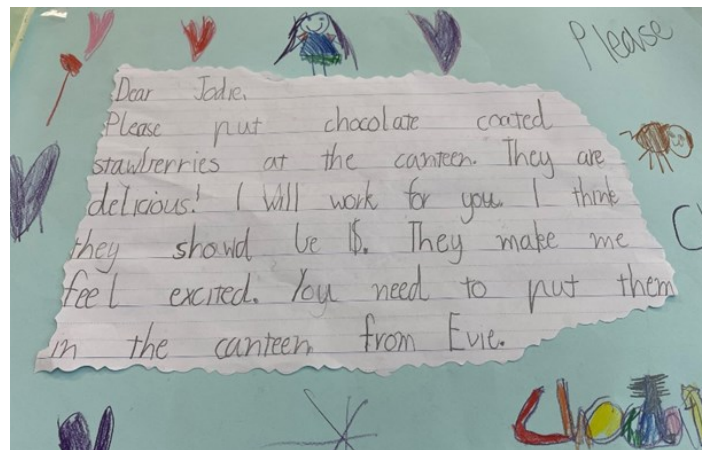 Please
Dear Jodie,
Please put chocolate coated
stawberries at the canteen. They are
delicious! I will work for you. I think
they should be 1$. They make me
feel excited. You need to put them
in the canteen from Evie.